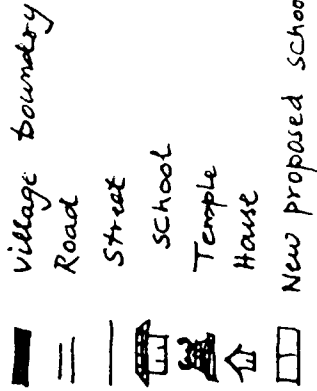 Village boundry
Road
Street
school
Temple
House
New proposed schoo